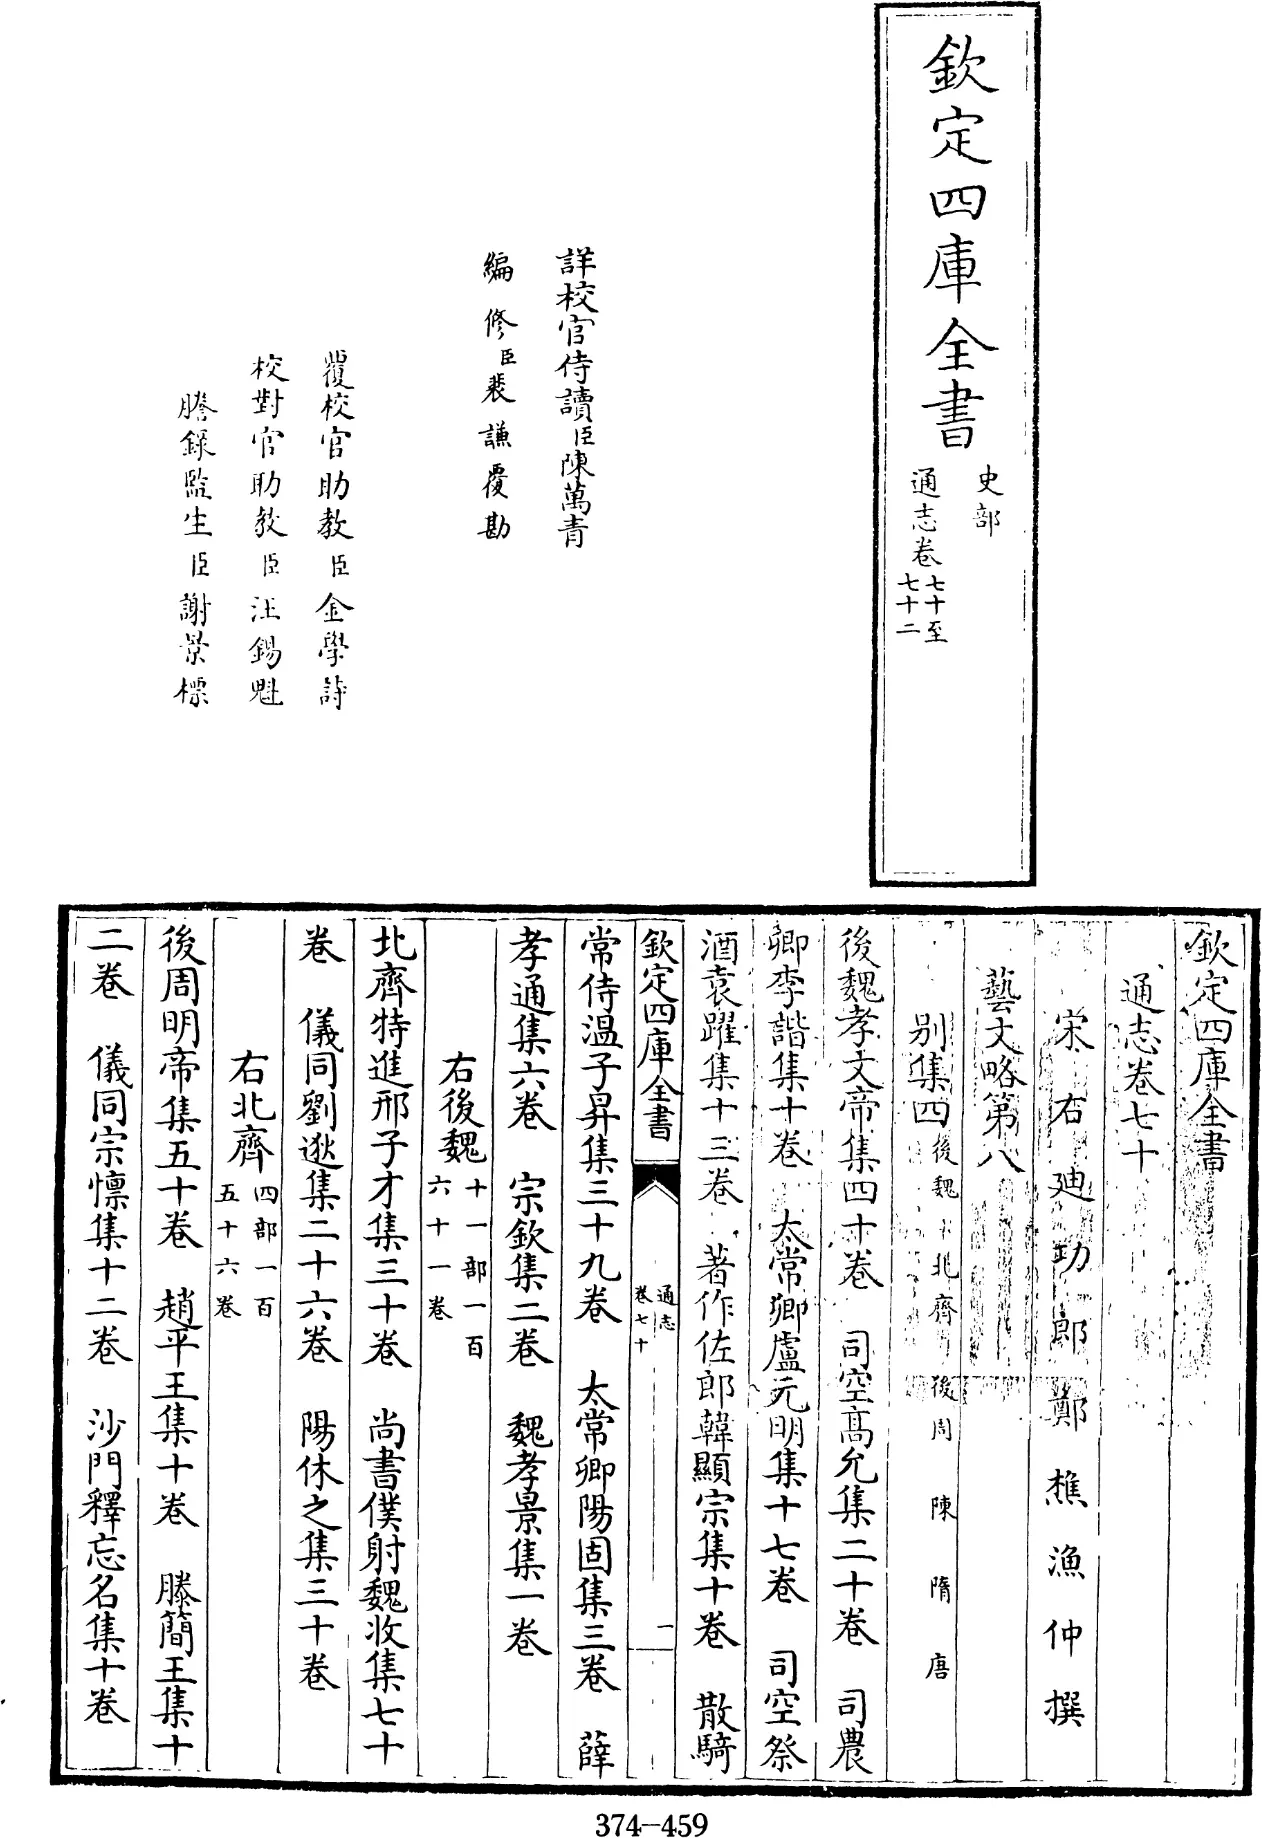 欽定四庫全書
史部
通志卷七十至七十二
詳校官侍讀臣陳萬青
編修臣裴謙覆勘
覆校官助教臣金學詩
校對官助教臣汪錫魁
謄錄監生臣謝景標
欽定四庫全書
通志卷七十
宋右迪功郎鄭樵漁仲撰
藝文略第八
別集四後魏 北齊 後周 陳 隋 唐
後魏孝文帝集四十卷 司空高允集二十卷 司農
卿李諧集十卷 太常卿盧元明集十七卷 司空祭
酒袁躍集十三卷 著作佐郎韓顯宗集十卷 散騎
欽定四庫全書
通志
卷七十
一
常侍溫子昇集三十九卷 太常卿陽固集三卷 薛
孝通集六卷 宗欽集二卷 魏孝景集一卷
右後魏十一部一百六十一卷
北齊特進邢子才集三十卷 尚書僕射魏收集七十
卷 儀同劉逖集二十六卷 陽休之集三十卷
右北齊四部一百五十六卷
後周明帝集五十卷 趙平王集十卷 滕簡王集十
二卷 儀同宗懍集十二卷 沙門釋忘名集十卷
374-459